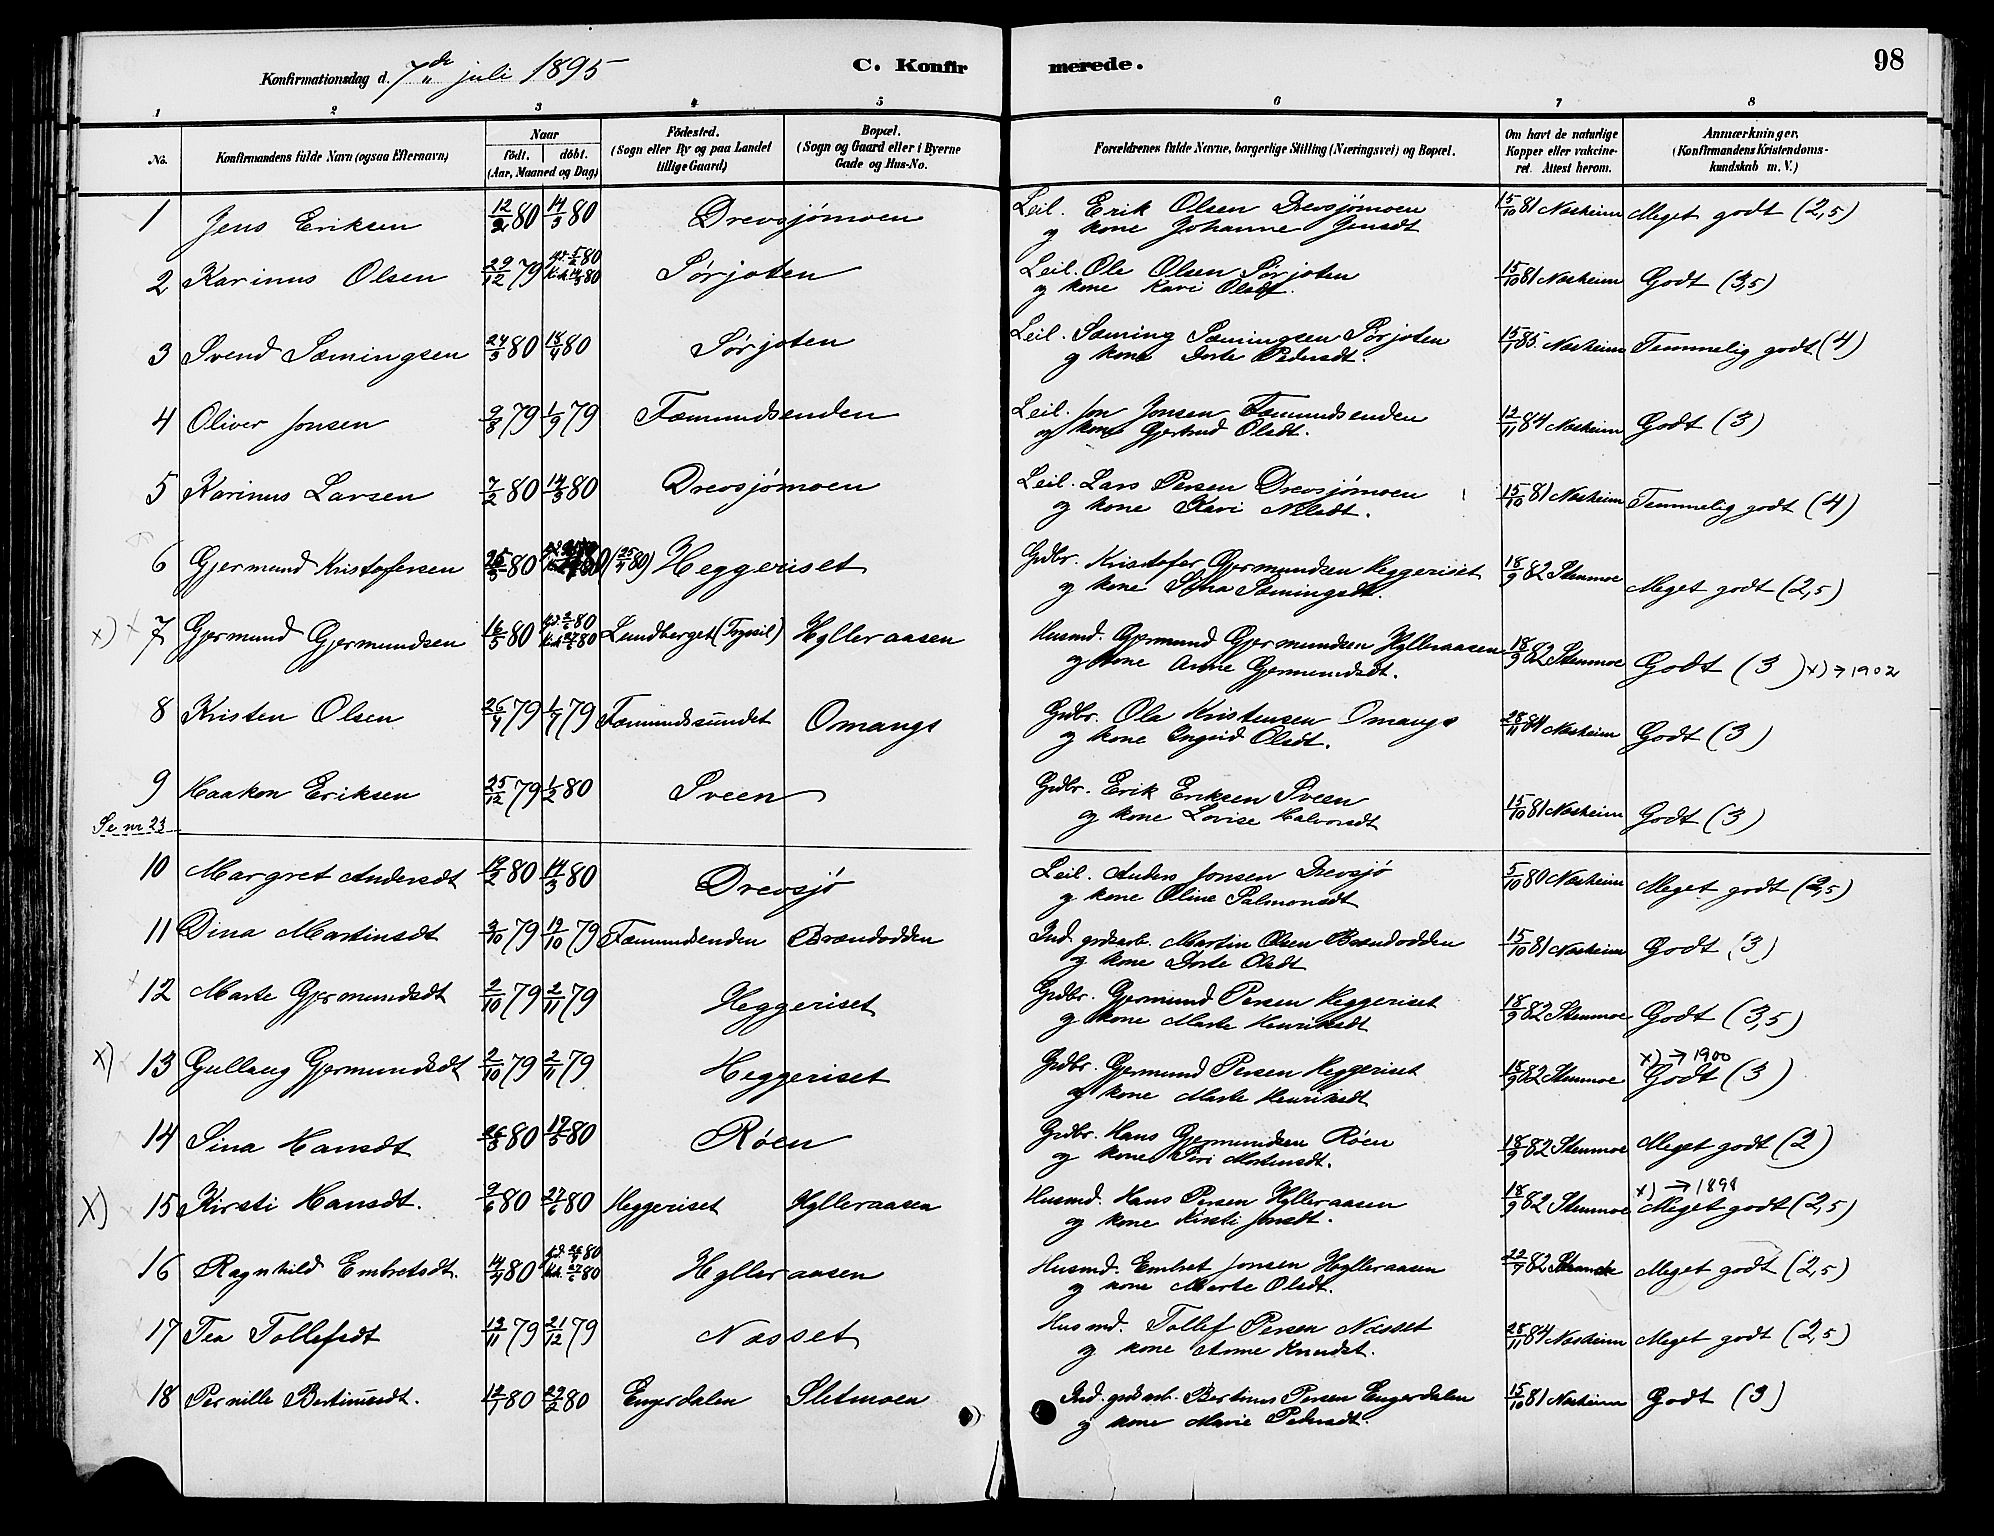 Konfirmationsdag d. 7de juli 1895 C. Konfirmerede. 98
1 2 3 4 5 6 7 8
No. Konfirmandens fulde Navn (ogsaa Efternavn) Naar født. døbt. (Aar, Maaned og Dag) Fødested. (Sogn eller By og paa Landet tillige Gaard) Bopæl. (Sogn og Gaard eller i Byerne Gade og Hus-No. Forældrenes fulde Navne, borgerlige Stilling (Næringsvei) og Bopæl. Om havt de naturlige Kopper eller vakcineret. Attest herom. Anmærkninger. (Konfirmandens Kristendomskundskab m. V.)
1 Jens Eriksen 12/2 80 14/3 80 Drevsjømoen Leil. Erik Olsen Drevsjømoen 15/10 81 Nosheim Meget godt (2,5)
og kone Johanne Jensdt
2 Karinus Olsen 29/12 79 80 Kirk. 14/3 80 Sørjoten Leil. Ole Olsen Sørjoten 15/10 81 Nosheim Godt (3,5)
og kone Kari Olsdt.
3 Svend Sæmingsen 24/3 80 18/4 80 Sørjoten Leil. Sæming Sæmingsen Sørjoten 15/7 85 Nosheim Temmelig godt (4)
og kone Dorte Pedersdt.
4 Oliver Jonsen 9/8 79 1/9 79 Fæmundsenden Leil. Jon Jonsen Fæmundsenden 12/11 84 Nosheim Godt (3)
og kone Gjertrud Olsdt.
5 Karinus Larsen 7/2 80 14/3 80 Drevsjømoen Leil. Lars Persen Drevsjømoen 15/10 81 Nosheim Temmelig godt (4)
og kone Kari Nilsdt.
6 Gjermund Kristofersen 80 (25/4 80) Heggeriset Grdbr. Kristofer Gjermundsen Heggeriset 18/9 82 Stenmoe Meget godt (2,5)
og kone Stina Sæmingsdt.
x) 7 Gjermund Gjermundsen 16/5 80 80 Kirk 27/6 80 Lundberget (Trysil) Hylleraasen Husmd. Gjermund Gjermundsen Hylleraasen 18/9 82 Stenmoe Godt (3) x) → 1902
og kone Anne Gjermundsdt.
8 Kristen Olsen 26/4 79 1/7 79 Fæmundssundet Omangs Grdbr. Ola Kristensen Omangs 28/11 84 Nosheim Godt (3)
og kone Ingrid Olsdt.
9 Haakon Eriksen 25/12 79 1/2 80 Sveen Grdbr. Erik Eriksen Sveen 15/10 81 Nosheim Godt (3)
Se nr 23 og kone Lovise Halvorsdt
10 Margret Andersdt 17/2 80 14/3 80 Drevsjø Leil. Anders Jonsen Drevsjø 5/10 80 Nosheim Meget godt (2,5)
og kone Oline Salmonsdt
11 Dina Martinsdt 3/10 79 19/10 79 Fæmundsenden Brændodden Ind. grdsarb. Martin Olsen Brændodden 15/10 81 Nosheim Godt (3)
og kone Dorte Olsdt
12 Marte Gjermundsdt 2/10 79 2/11 79 Heggeriset Grdbr. Gjermund Persen Heggeriset 18/9 82 Stenmoe Godt (3,5)
og kone Marte Henriksdt
x) 13 Gullaug Gjermundsdt 2/10 79 2/11 79 Heggeriset Grdbr. Gjermund Persen Heggeriset 18/9 82 Stenmoe x) → 1900 Godt (3)
og kone Marte Henriksdt
14 Sina Hansdt 26/3 80 17/5 80 Røen Grdbr. Hans Gjermundsen Røen 18/9 82 Stenmoe Meget godt (2)
og kone Siri Mortensdt.
x) 15 Kirsti Hansdt. 9/6 80 27/6 80 Heggeriset Hylleraasen Husmd. Hans Persen Hylleraasen 18/9 82 Stenmoe x) → 1898 Meget godt (2,5)
og kone Kirsti Jonsdt.
16 Ragnhild Embretsdt. 14/4 80 80 Kirk. 27/6 80 Hylleraasen Husmd. Embret Jonsen Hylleraasen 82 Meget godt (2,5)
og kone Marte Olsdt.
17 Tea Tollefsdt 13/11 79 21/12 79 Næsset Husmd. Tollef Persen Næsset 28/11 84 Nosheim Meget godt (2,5)
og kone Anne Knudsdt.
18 Pernille Bertinusdt. 12/1 80 29/2 80 Engerdalen Sletmoen Ind. grdsarb. Bertinus Persen Engerdalen 15/10 81 Nosheim Godt (3)
og kone Marie Pedersdt.